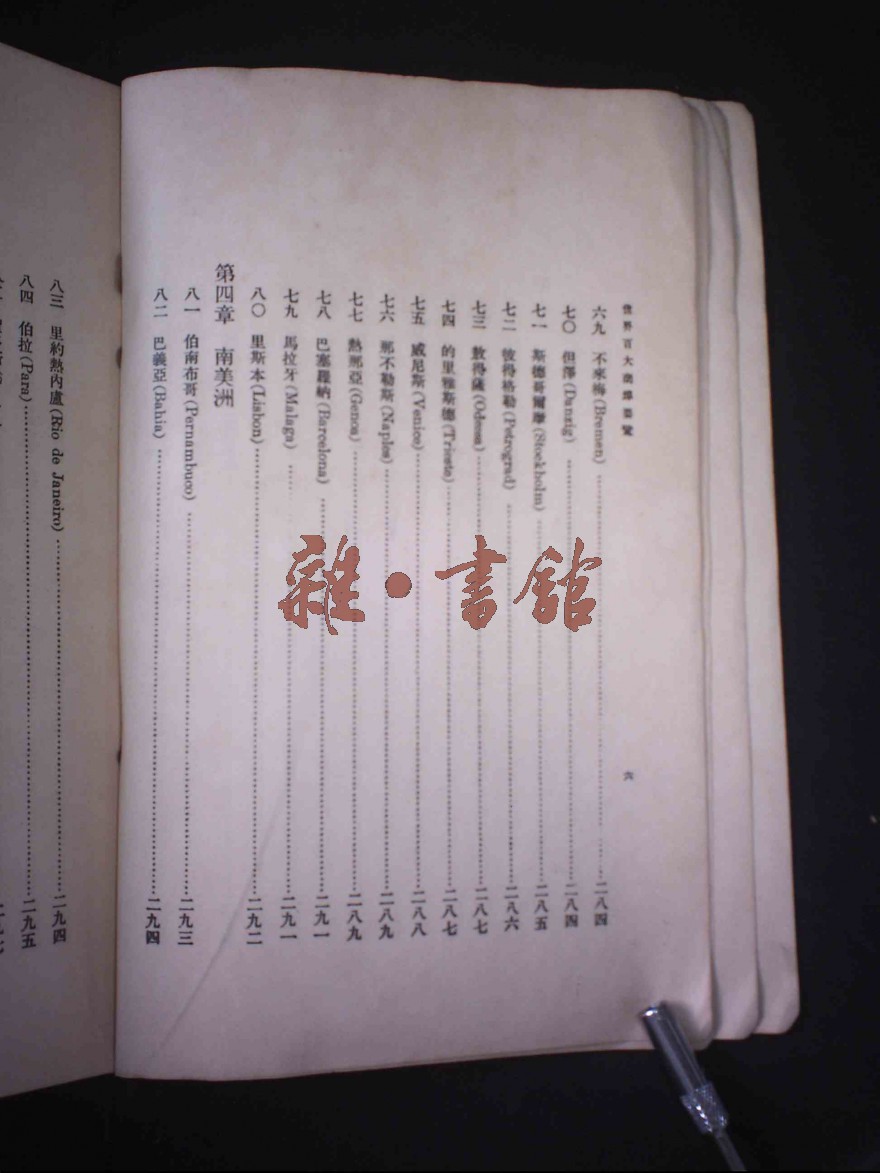 世界百大商埠要覽
六九 不來梅(Bremen)……二八四
七〇 但澤(Danzig)……二八四
七一 斯德哥爾摩(Stockholm)……二八五
七二 彼得格勒(Petrograd)……二八六
七三 敖得薩(Odessa)……二八七
七四 的里雅斯德(Trieste)……二八七
七五 威尼斯(Venice)……二八八
七六 那不勒斯(Naples)……二八九
七七 熱那亞(Genoa)……二八九
七八 巴塞羅納(Barcelona)……二九一
七九 馬拉牙(Malaga)……二九一
八〇 里斯本(Lisbon)……二九二
第四章 南美洲
八一 伯南布哥(Pernambuco)……二九三
八二 巴義亞(Bahia)……二九四
六
八三 里約熱內盧(Rio de Janeiro)……二九四
八四 伯拉(Para)……二九五
雜·書館